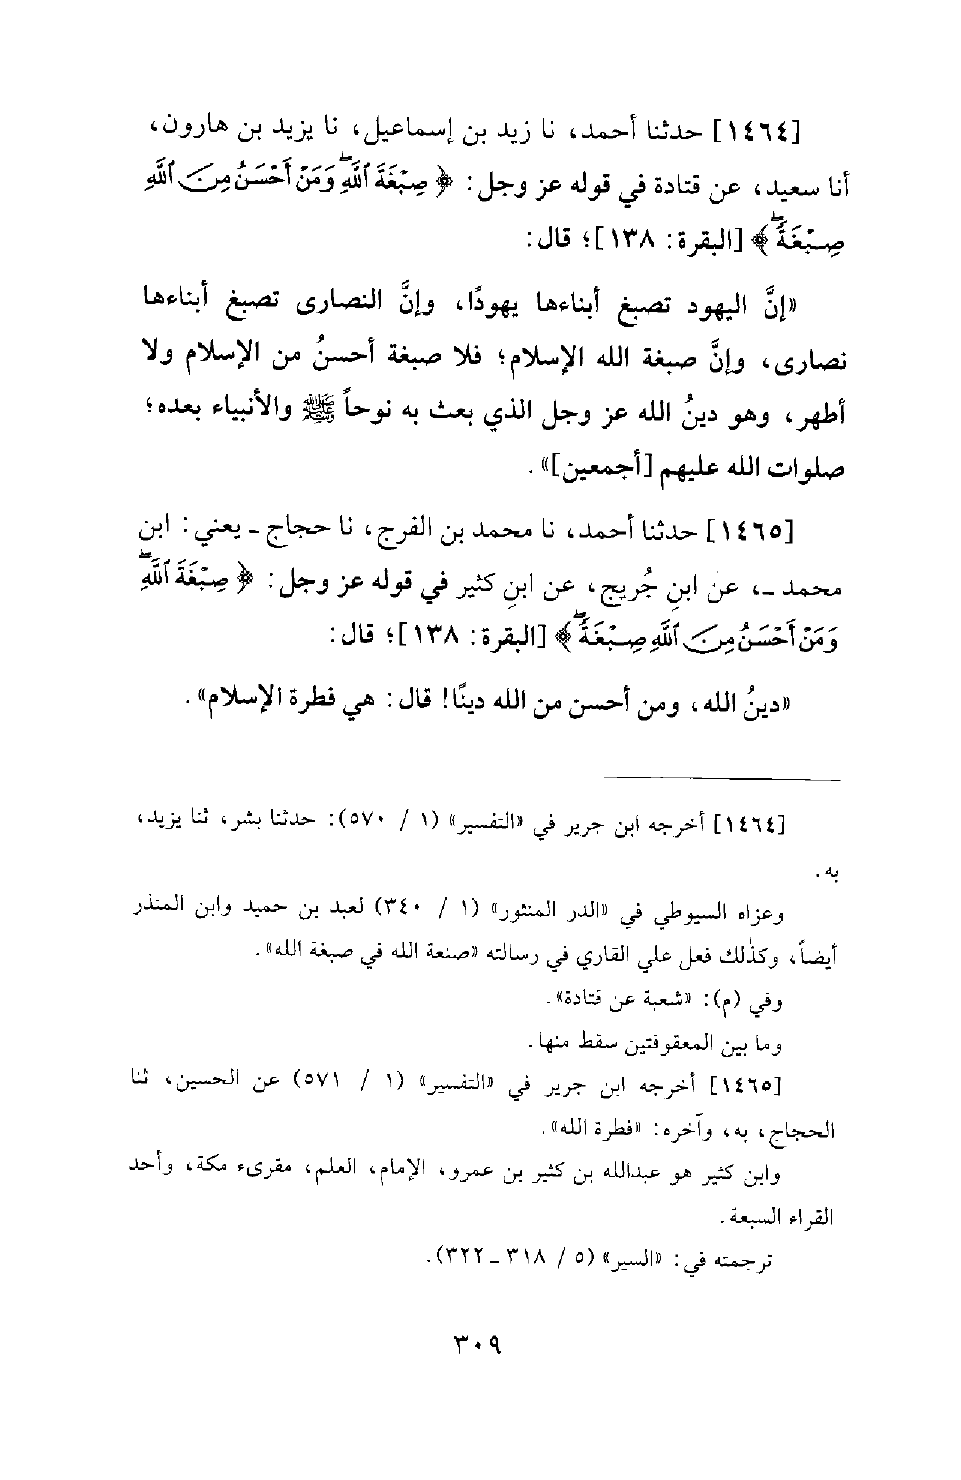 [١٤٦٤] حدثنا أحمد، نا زيد بن إسماعيل، نا يزيد بن هارون،
أنا سعيد، عن قتادة في قوله عز وجل: ﴿صِبْغَةَ ٱللَّهِ ۖ وَمَنْ أَحْسَنُ مِنَ ٱللَّهِ
صِبْغَةً ۖ﴾ [البقرة: ١٣٨]؛ قال:
«إنَّ اليهود تصبغ أبناءها يهودًا، وإنَّ النصارى تصبغ أبناءها
نصارى، وإنَّ صبغة الله الإسلام؛ فلا صبغة أحسنُ من الإسلام ولا
أطهر، وهو دينُ الله عز وجل الذي بعث به نوحاً ﷺ والأنبياء بعده؛
صلوات الله عليهم [أجمعين]».
[١٤٦٥] حدثنا أحمد، نا محمد بن الفرج، نا حجاج ـ يعني: ابن
محمد ـ، عن ابنِ جُريج، عن ابنِ كثير في قوله عز وجل: ﴿صِبْغَةَ ٱللَّهِ ۖ
وَمَنْ أَحْسَنُ مِنَ ٱللَّهِ صِبْغَةً ۖ﴾ [البقرة: ١٣٨]؛ قال:
«دينُ الله، ومن أحسن من الله دينًا! قال: هي فطرة الإسلام».
[١٤٦٤] أخرجه ابن جرير في «التفسير» (١ / ٥٧٠): حدثنا بشر، ثنا يزيد،
به.
وعزاه السيوطي في «الدر المنثور» (١ / ٣٤٠) لعبد بن حميد وابن المنذر
أيضاً، وكذلك فعل علي القاري في رسالته «صنعة الله في صبغة الله».
وفي (م): «شعبة عن قتادة».
وما بين المعقوفتين سقط منها.
[١٤٦٥] أخرجه ابن جرير في «التفسير» (١ / ٥٧١) عن الحسين، ثنا
الحجاج، به، وآخره: «فطرة الله».
وابن كثير هو عبدالله بن كثير بن عمرو، الإمام، العلم، مقرىء مكة، وأحد
القراء السبعة.
ترجمته في: «السير» (٥ / ٣١٨ ـ ٣٢٢).
٣٠٩